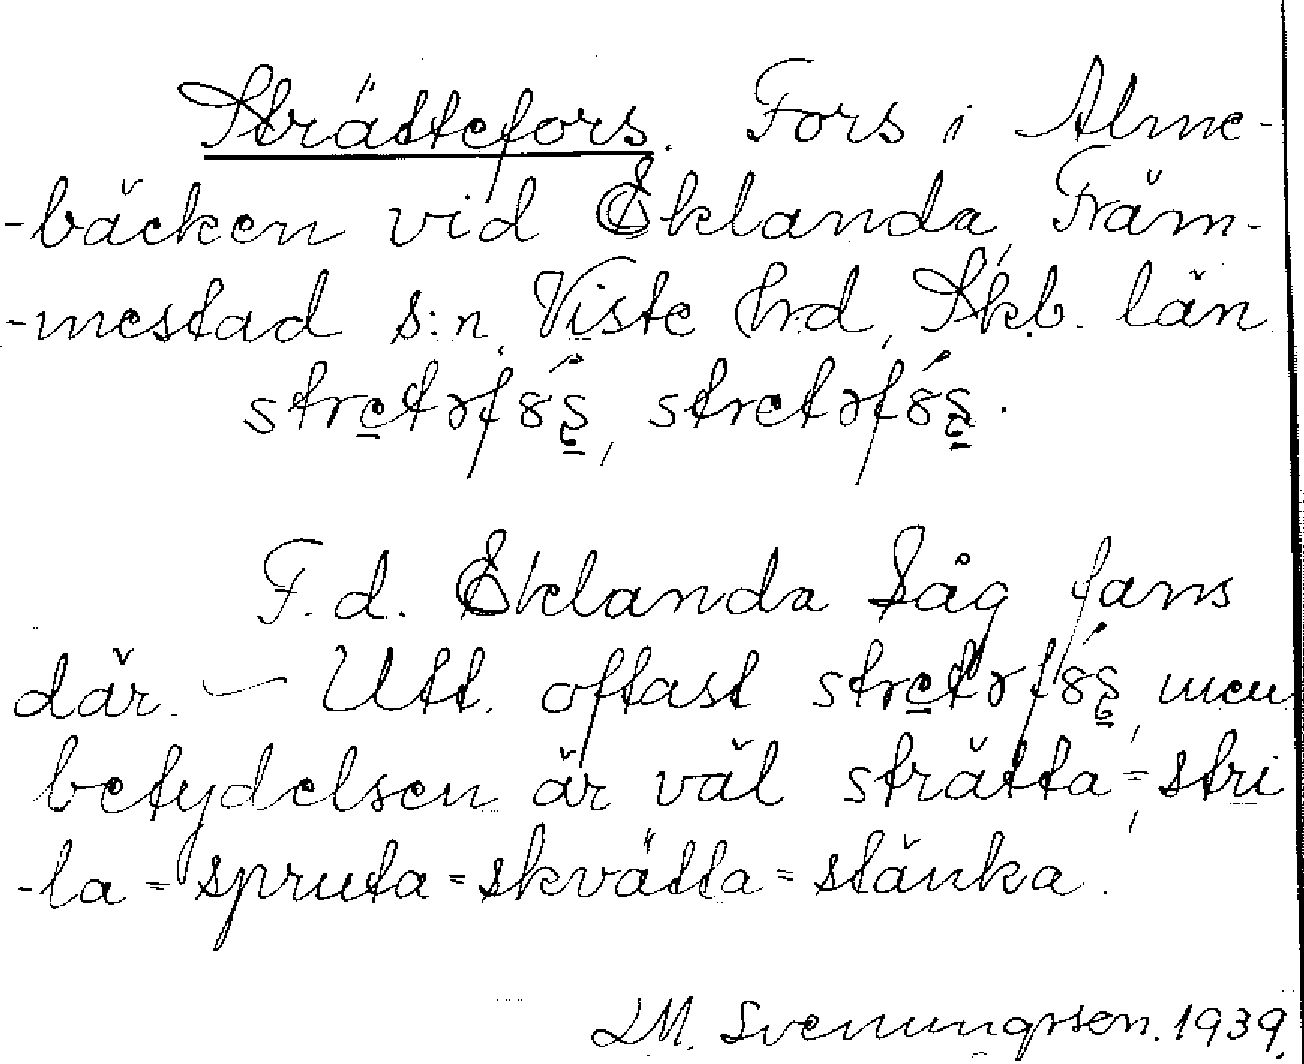 Strättefors. Fors i Alme-
-bäcken vid Eklanda, Främ-
-mestad s:n, Viste hrd, Skb. län
F.d. Eklanda Såg fans
där. — Utt. oftast men
betydelsen är väl strätta = stri
-la = spruta = skvätta = stänka.
LM. Svenungsson. 1939.